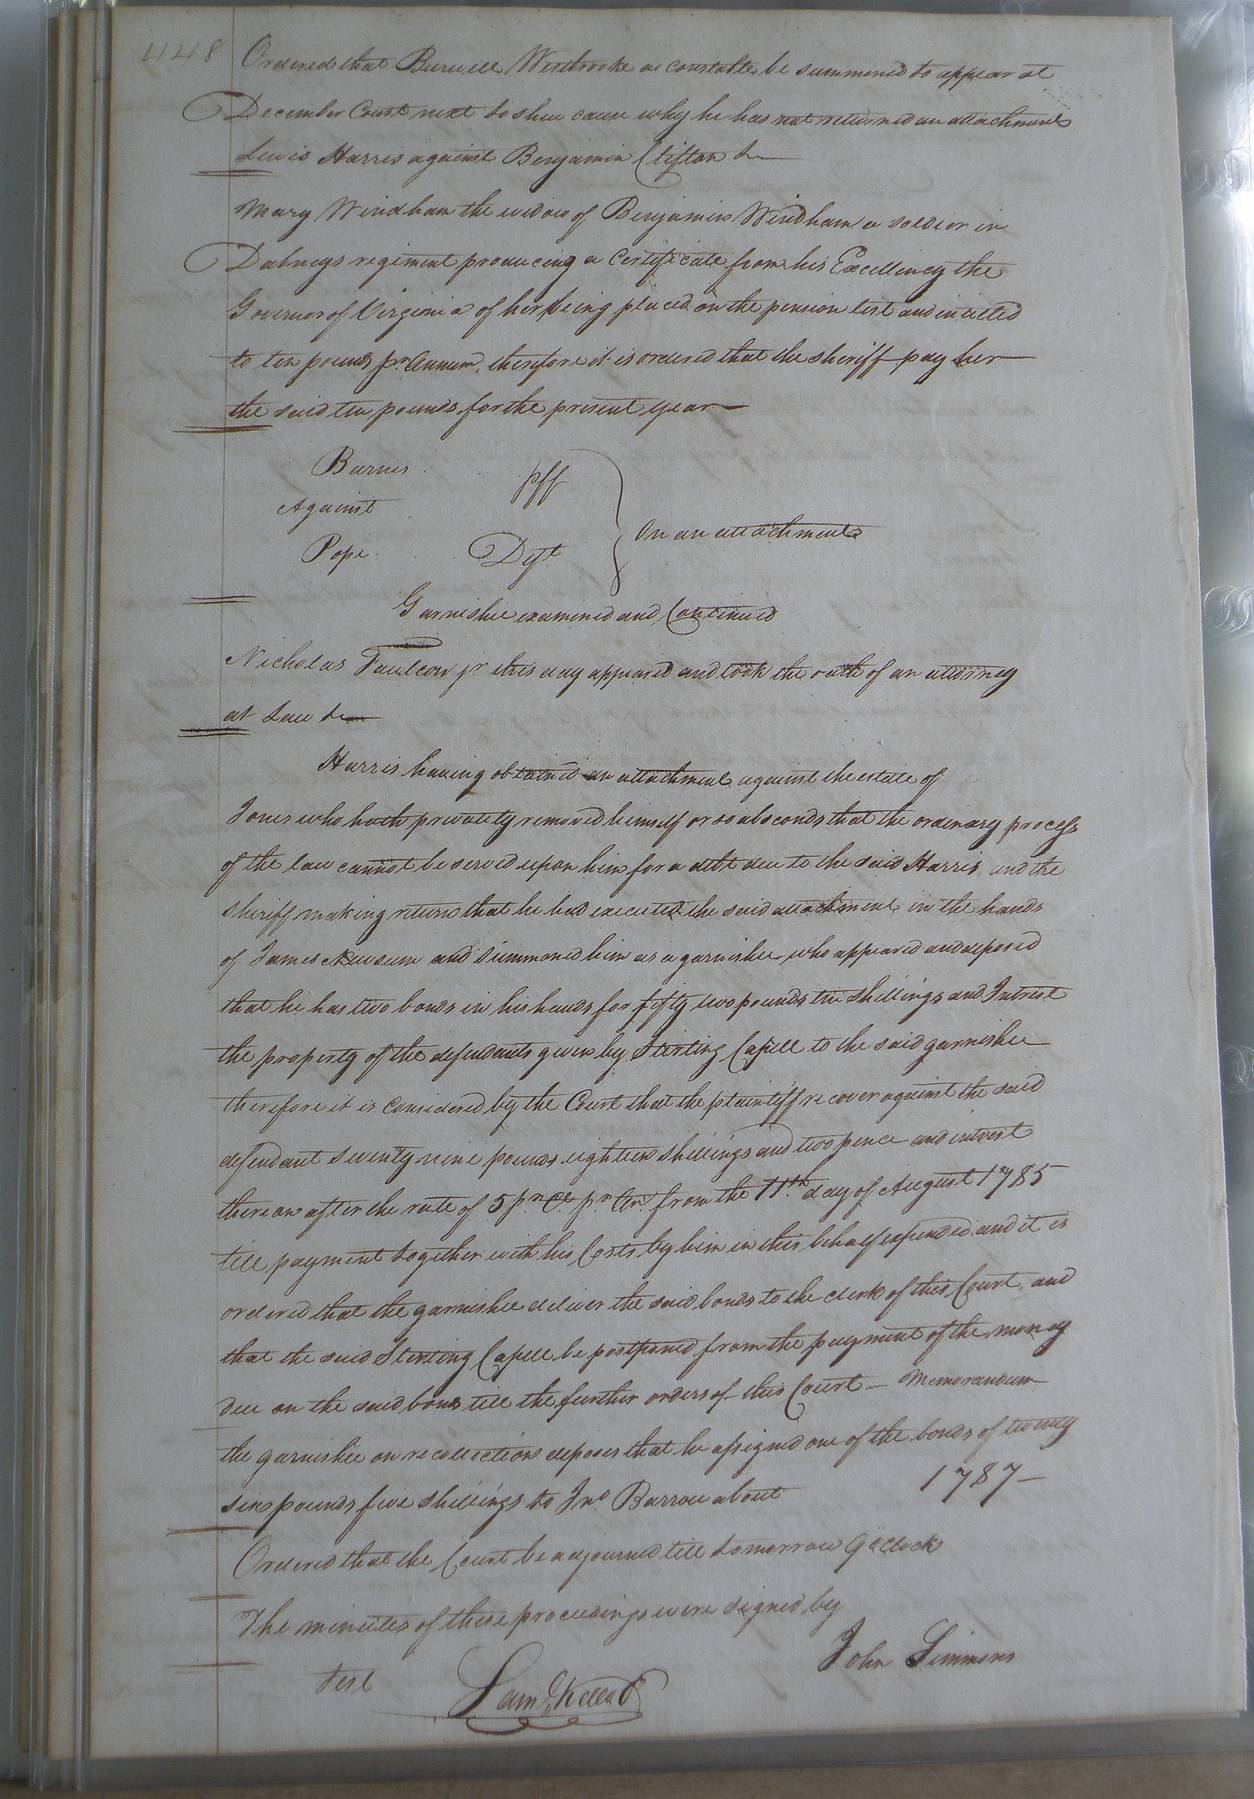 448
Ordered that Burwell Westbrooke a constable be summoned to appear at
December Court next to shew cause why he has not returned an attachment
Lewis Harris against Benjamin Clifton &
Mary Windham the widow of Benjamin Windham a soldier in
Dabneys regiment producing a Certificate from his Excellency the
Governor of Virginia of her being placed on the pension list and intitled
to ten pounds pr. Annum, therefore it is ordered that the sheriff pay her
the said ten pounds for the present year
Barnes plf
Against
Pope Deft
On an attachment
Garnishee examined and Continued
Nicholas Faulcon jr this day appeared and took the oath of an attorney
at Law &
Harris having obtained an attachment against the estate of
Jones who hath privately removed himself or so absconds that the ordinary process
of the law cannot be served upon him for a debt due to the said Harris and the
sheriff making return that he had executed the said attachment in the hands
of James Newsum and summoned him as a garnishee who appeared and deposed
that he has two bonds in his hands for fifty two pounds ten shillings and Intrest
the property of the defendants given by Sterling Capell to the said garnishee
therefore it is considered by the Court that the plaintiff recover against the said
defendant seventy nine pounds eighteen shillings and two pence and intrest
thereon after the rate of 5 pr Ct. pr An. from the 11th. day of August 1785
till payment together with his Costs by him in this behalf expended and it is
ordered that the garnishee deliver the said bonds to the clerk of this Court and
that the said Sterling Capell be postponed from the payment of the money
due on the said bonds till the further orders of this Court - Memorandum
the garnishee on recollection deposes that he assigned one of the bonds of twenty
six pounds five shillings to Jno Barrow about 1787-
Ordered that the Court be adjourned till tomorrow 9 oClock
The minutes of these proceedings were signed by
John Simmons
Test Saml. Kello